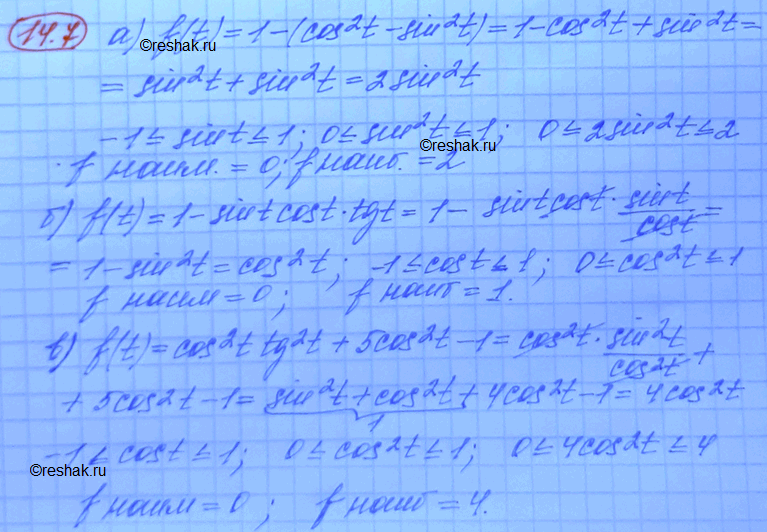 14.7 а) f(t) = 1 - (cos²t - sin²t) = 1 - cos²t + sin²t =
©reshak.ru
= sin²t + sin²t = 2sin²t
-1 ≤ sint ≤ 1; 0 ≤ sin²t ≤ 1; 0 ≤ 2sin²t ≤ 2
©reshak.ru
f наим. = 0; f наиб. = 2
б) f(t) = 1 - sint cost · tgt = 1 - sint cost · sint/cost =
= 1 - sin²t = cos²t; -1 ≤ cost ≤ 1; 0 ≤ cos²t ≤ 1
f наим = 0; f наиб = 1.
в) f(t) = cos²t tg²t + 5cos²t - 1 = cos²t · sin²t/cos²t +
+ 5cos²t - 1 = sin²t + cos²t + 4cos²t - 1 = 4cos²t
1
-1 ≤ cost ≤ 1; 0 ≤ cos²t ≤ 1; 0 ≤ 4cos²t ≤ 4
©reshak.ru
f наим = 0; f наиб = 4.